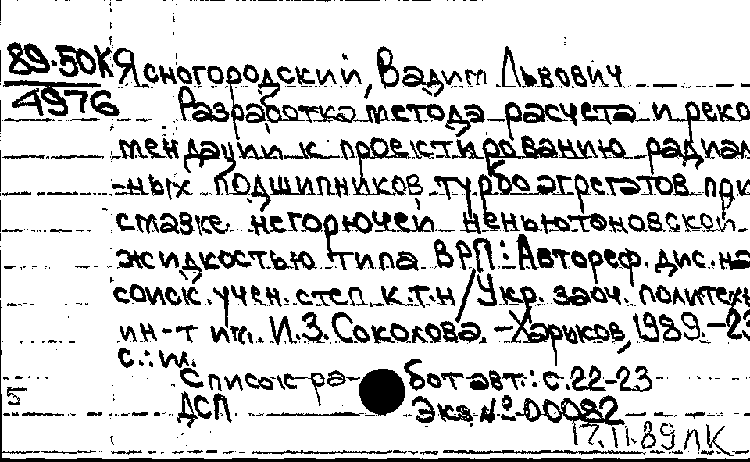 89-50К Ясногородский, Вадим Львович
4976 Разработка метода расчета и реко
мендации к проектированию радиал
-ных подшипников турбоагрегатов при
смазке негорючей неньютоновской
жидкостью типа ВРП: Автореф. дис. на
соиск. учен. степ. к.т.н/ Укр. заоч. политехн
ин-т им. И.З. Соколова. -Харьков, 1989.-23
с.: ил.
Список ра- бот авт.: с.22-23
5
ДСП Экз. №-00082
17.11.89 ЛК